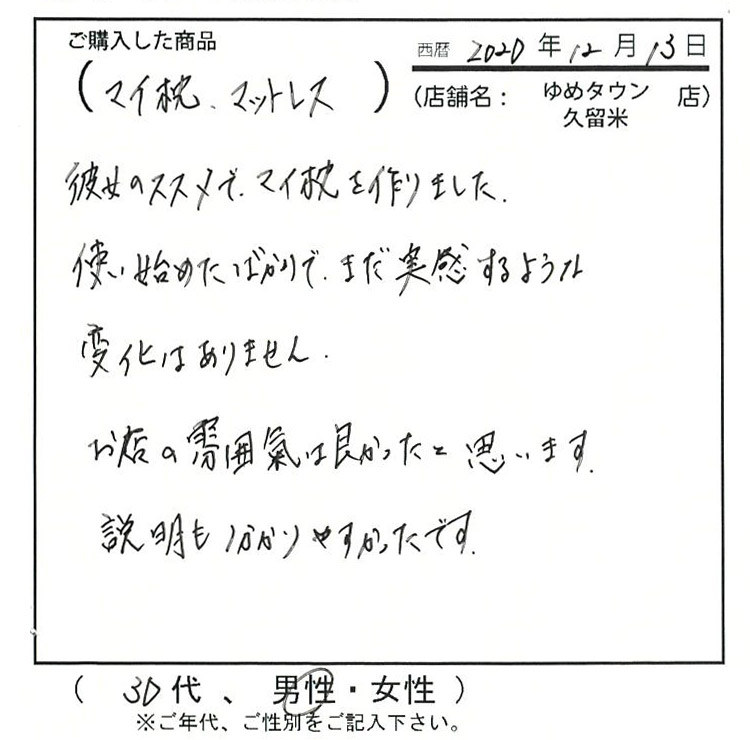 ご購入した商品
西暦 2020 年 12 月 13 日
(マイ枕、マットレス)
(店舗名： ゆめタウン久留米 店)
彼女のススメで、マイ枕を作りました。
使い始めたばかりで、まだ実感するような
変化はありません。
お店の雰囲氣は良かったと思います。
説明も分かりやすかったです。
( 30代 、 男性・女性 )
※ご年代、ご性別をご記入下さい。